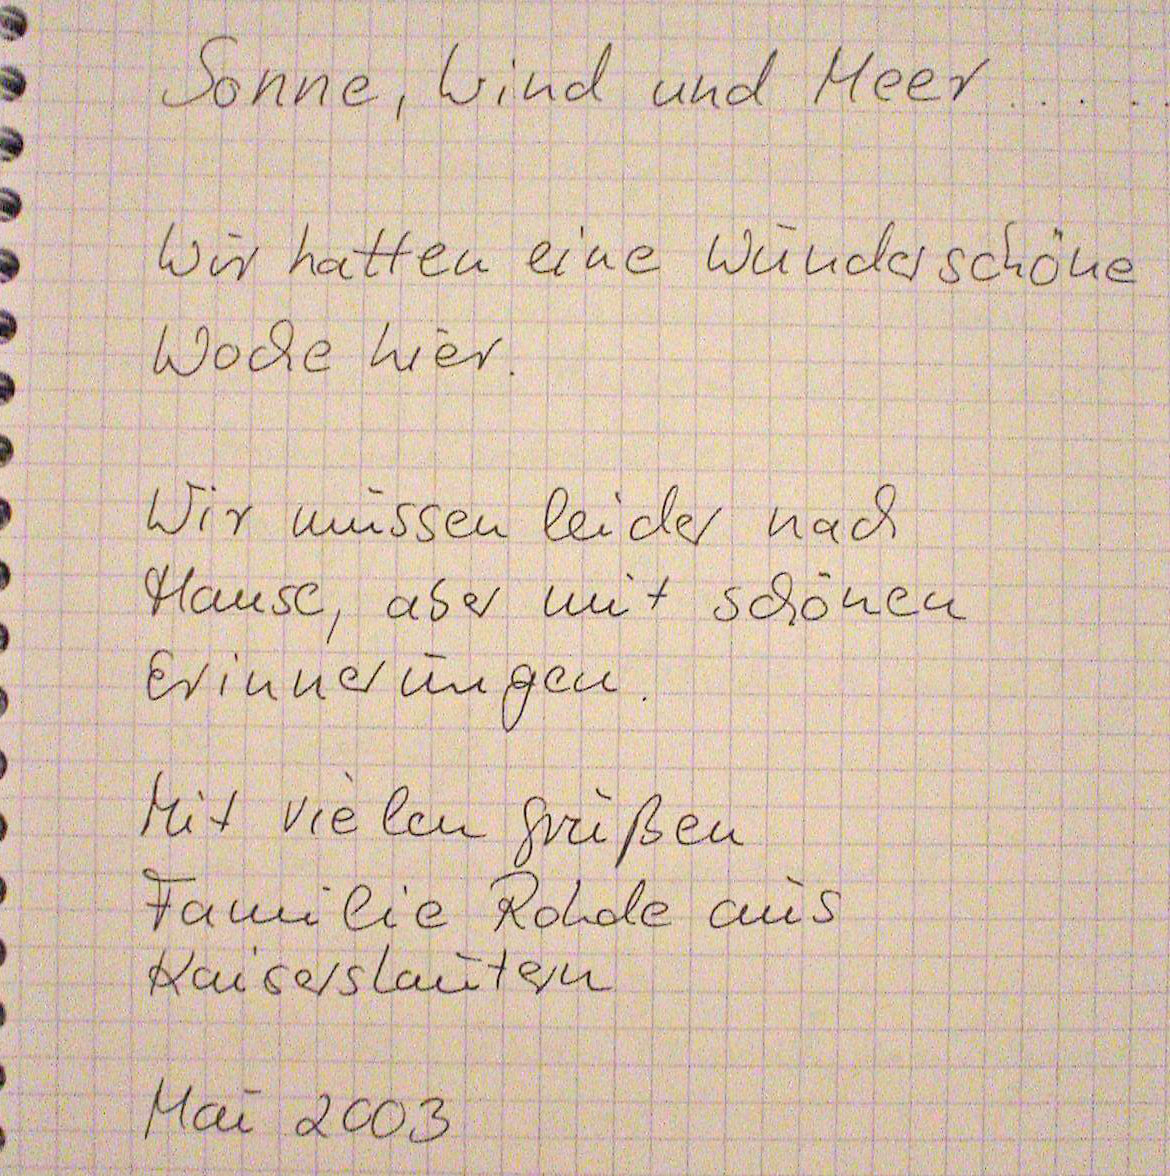 Sonne, Wind und Meer.....
Wir hatten eine wunderschöne
Woche hier.
Wir müssen leider nach
Hause, aber mit schönen
Erinnerungen.
Mit vielen Grüßen
Familie Rohde aus
Kaiserslautern
Mai 2003